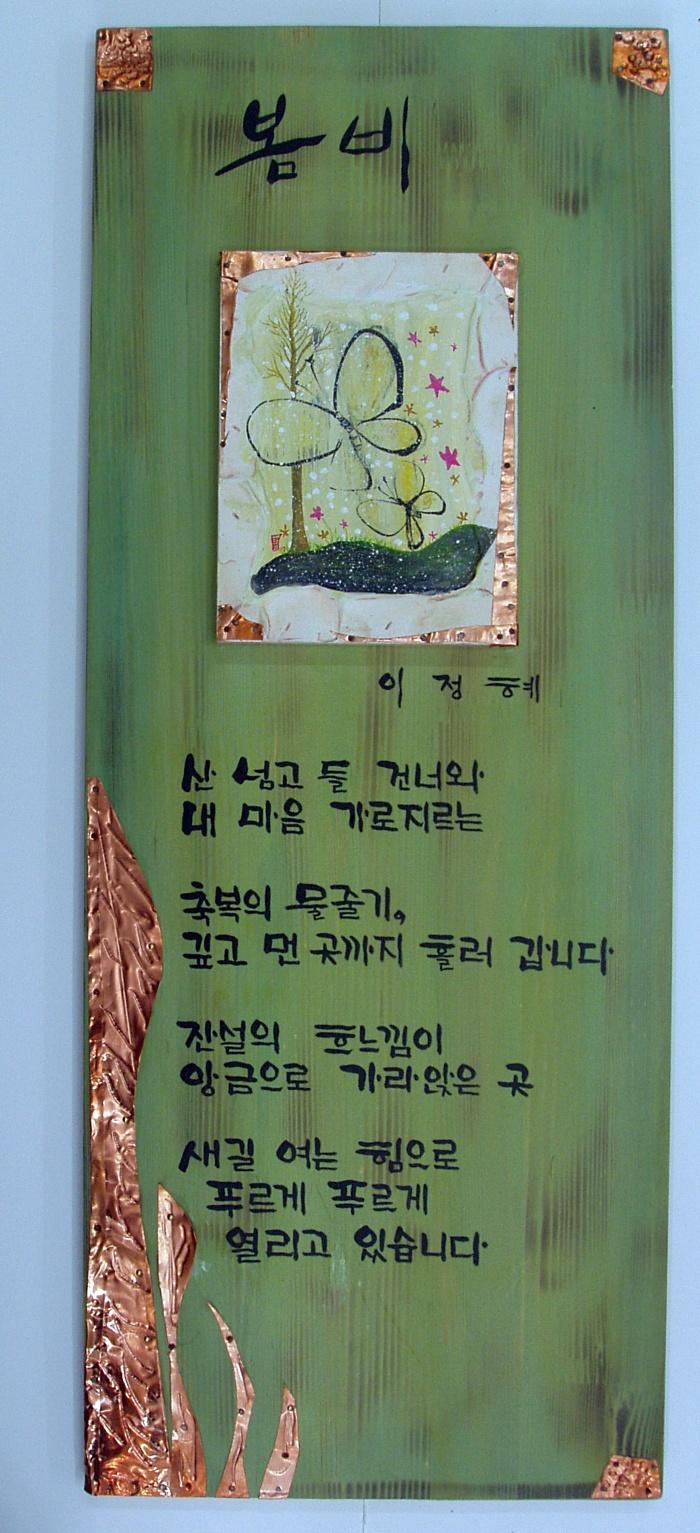 봄비
이정혜
산 넘고 들 건너와
내 마음 가로지르는
축복의 물줄기,
깊고 먼 곳까지 흘러 갑니다
잔설의 흐느낌이
앙금으로 가라앉은 곳
새길 여는 힘으로
푸르게 푸르게
열리고 있습니다